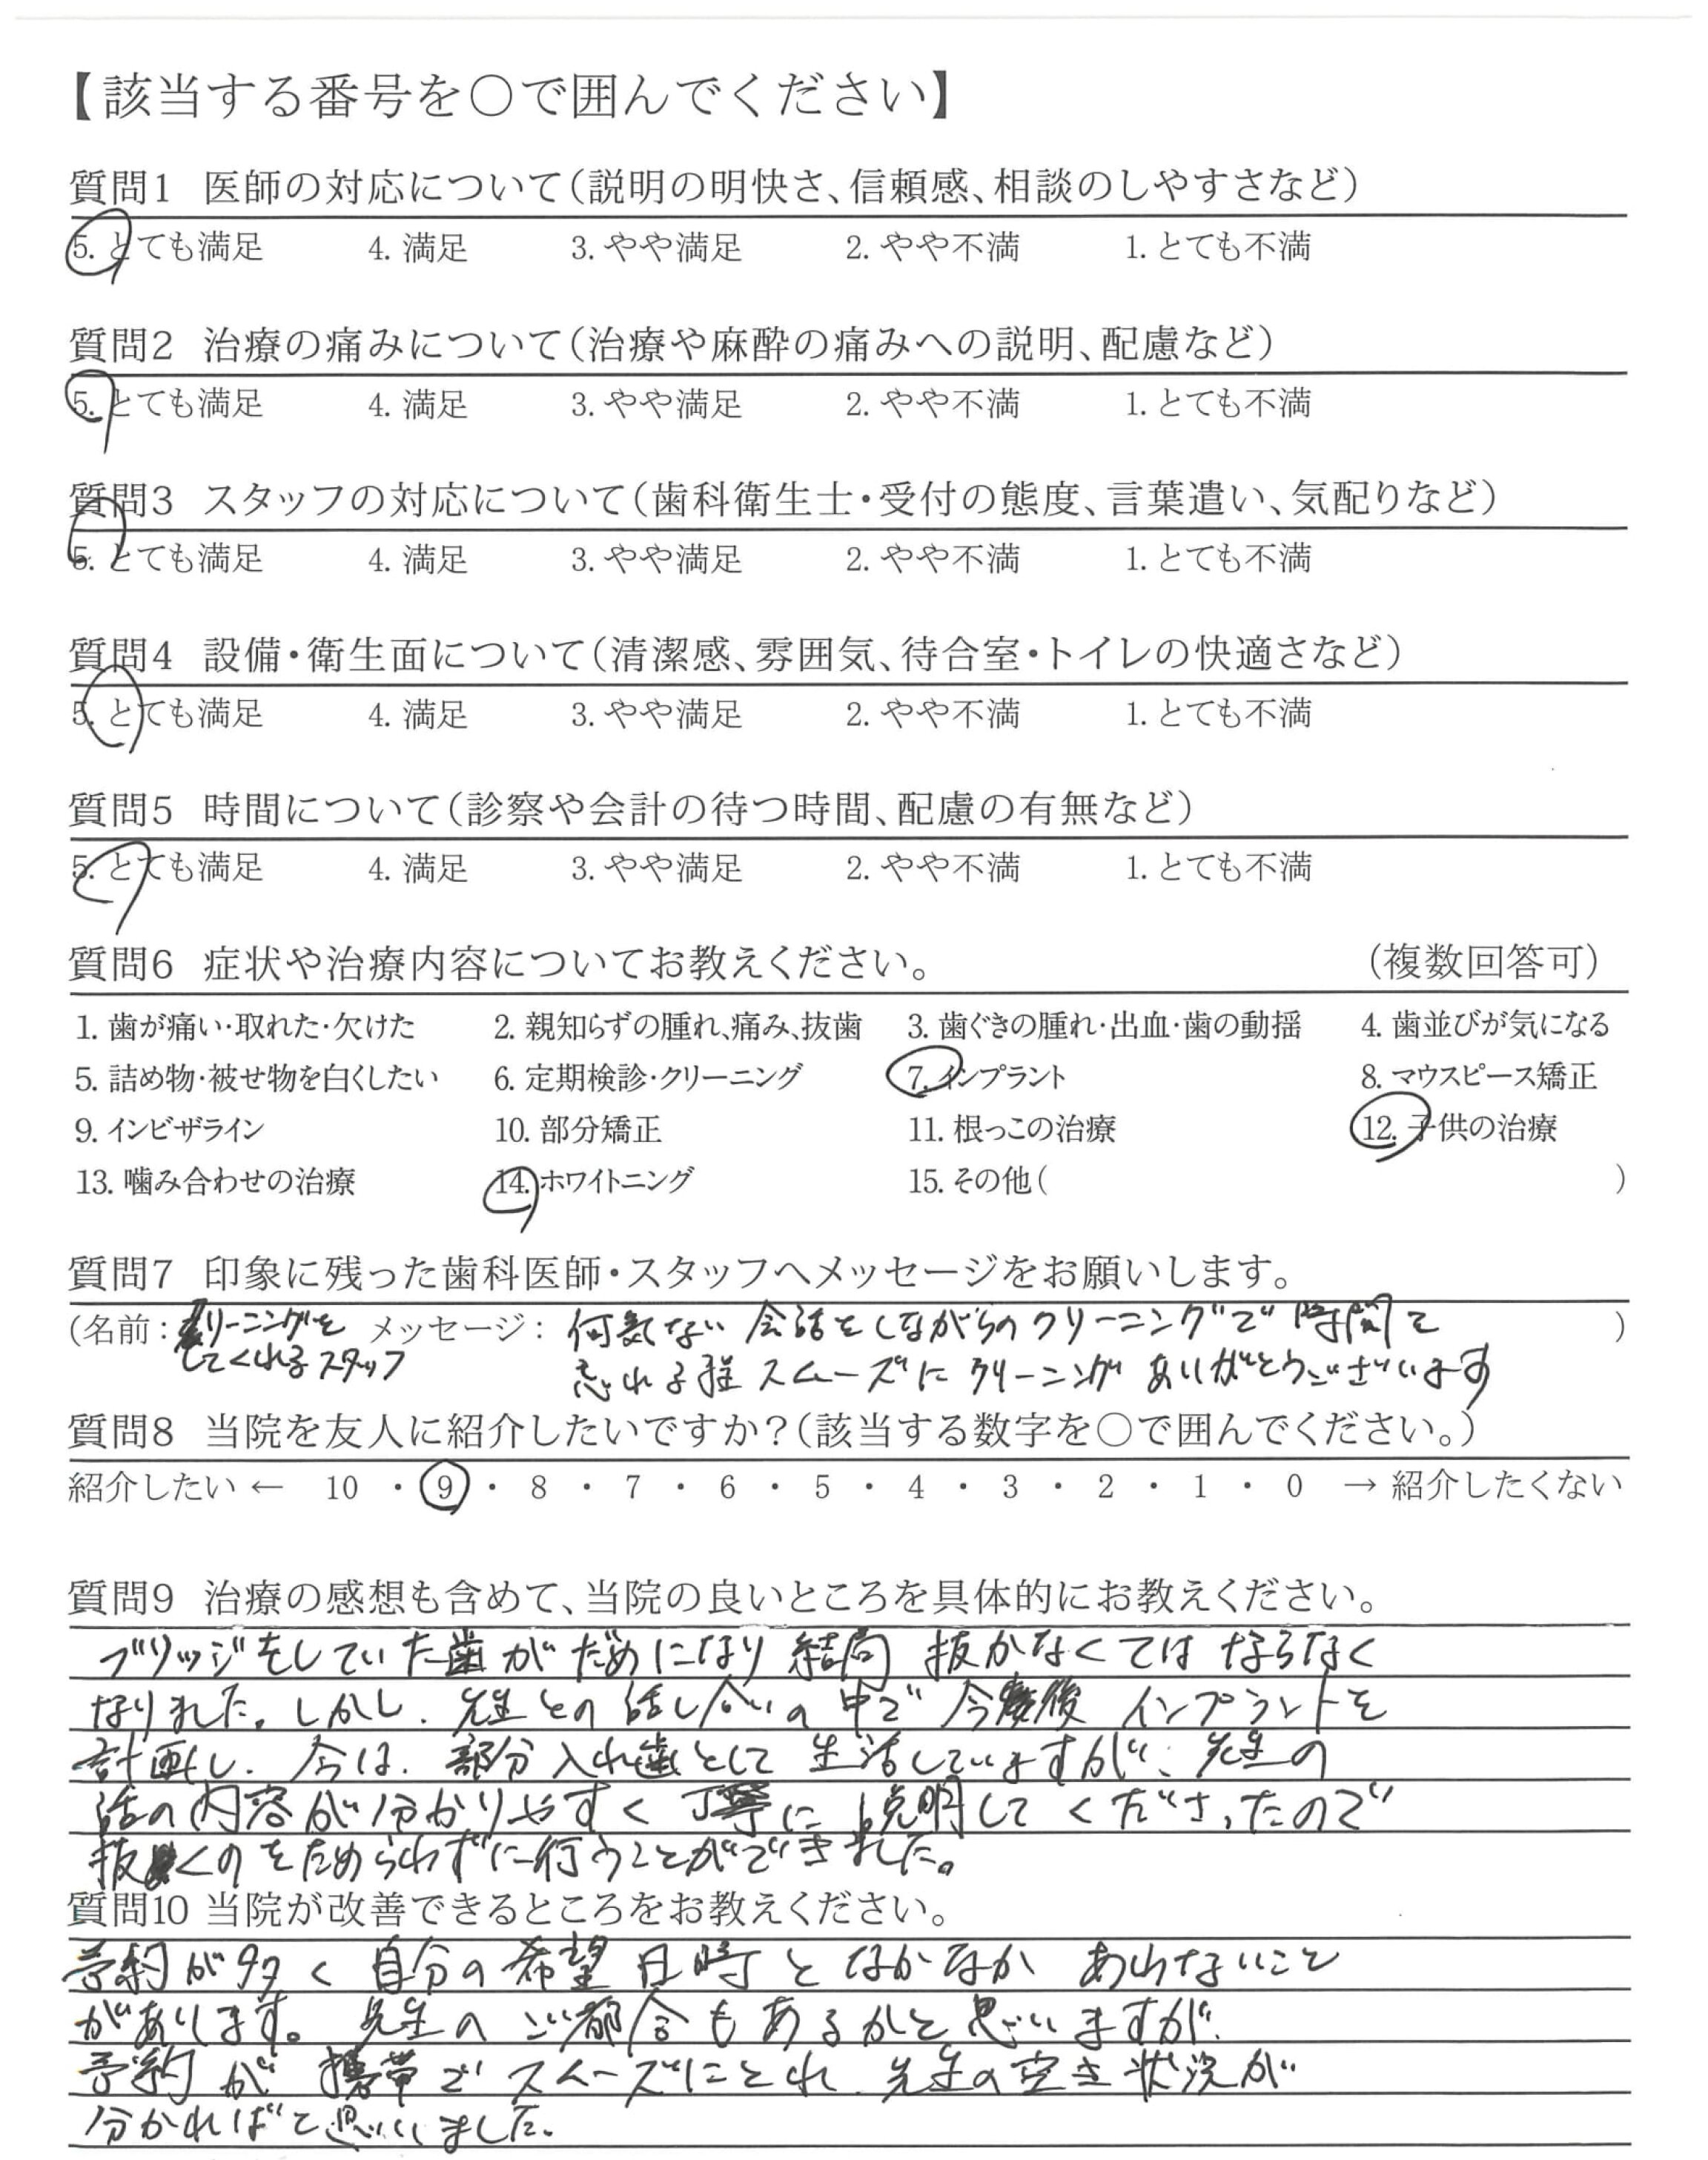 【該当する番号を○で囲んでください】
質問1 医師の対応について(説明の明快さ、信頼感、相談のしやすさなど)
5. とても満足 4. 満足 3. やや満足 2. やや不満 1. とても不満
質問2 治療の痛みについて(治療や麻酔の痛みへの説明、配慮など)
5. とても満足 4. 満足 3. やや満足 2. やや不満 1. とても不満
質問3 スタッフの対応について(歯科衛生士・受付の態度、言葉遣い、気配りなど)
5. とても満足 4. 満足 3. やや満足 2. やや不満 1. とても不満
質問4 設備・衛生面について(清潔感、雰囲気、待合室・トイレの快適さなど)
5. とても満足 4. 満足 3. やや満足 2. やや不満 1. とても不満
質問5 時間について(診察や会計の待つ時間、配慮の有無など)
5. とても満足 4. 満足 3. やや満足 2. やや不満 1. とても不満
質問6 症状や治療内容についてお教えください。 (複数回答可)
1. 歯が痛い・取れた・欠けた 2. 親知らずの腫れ、痛み、抜歯 3. 歯ぐきの腫れ・出血・歯の動揺 4. 歯並びが気になる
5. 詰め物・被せ物を白くしたい 6. 定期検診・クリーニング 7. インプラント 8. マウスピース矯正
9. インビザライン 10. 部分矯正 11. 根っこの治療 12. 子供の治療
13. 噛み合わせの治療 14. ホワイトニング 15. その他( )
質問7 印象に残った歯科医師・スタッフへメッセージをお願いします。
(名前: クリーニングを メッセージ: 何気ない 会話をしながらのクリーニングで 時間を )
してくれる スタッフ 忘れる程 スムーズに クリーニング ありがとうございます
質問8 当院を友人に紹介したいですか?(該当する数字を○で囲んでください。)
紹介したい ← 10 ・ 9 ・ 8 ・ 7 ・ 6 ・ 5 ・ 4 ・ 3 ・ 2 ・ 1 ・ 0 → 紹介したくない
質問9 治療の感想も含めて、当院の良いところを具体的にお教えください。
ブリッジをしていた歯が だめになり 結局 抜かなくては ならなく
なりました。しかし、先生との話し合いの中で 今後 インプラントを
計画し、今は、部分入れ歯として 生活していますが、先生の
話の内容が分かりやすく 丁寧に 説明して くださったので
抜くのをためらわずに行うことができました。
質問10 当院が改善できるところをお教えください。
予約が多く 自分の希望日時と なかなか あわないこと
があります。先生の ご都合もあるかと思いますが、
予約が 携帯で スムーズにとれ、先生の空き状況が
分かればと思いました。